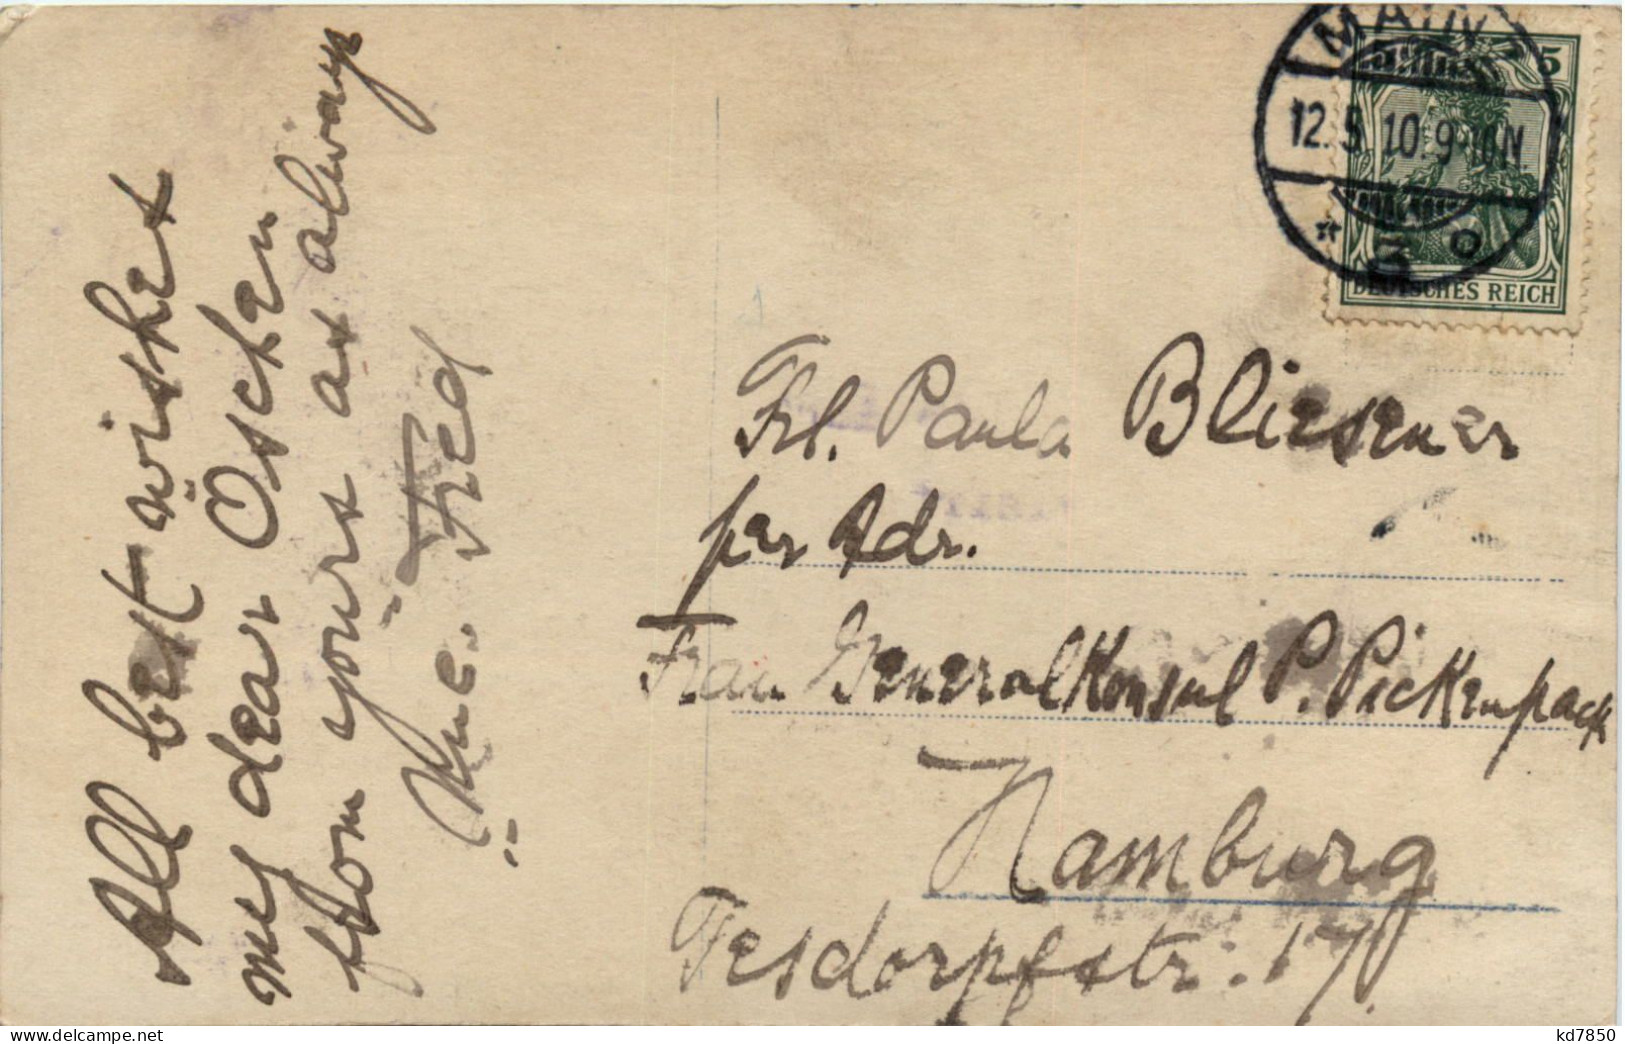 All best wishes
my dear Öschen
from yours as always
Fred
MAIN
12.5.10.9-10N
* 3 o
5
DEUTSCHES REICH
Frl. Paula Bliesener
per Adr.
Frau Generalkonsul P. Pickenpack
Hamburg
Tesdorpfstr. 17
kd7850